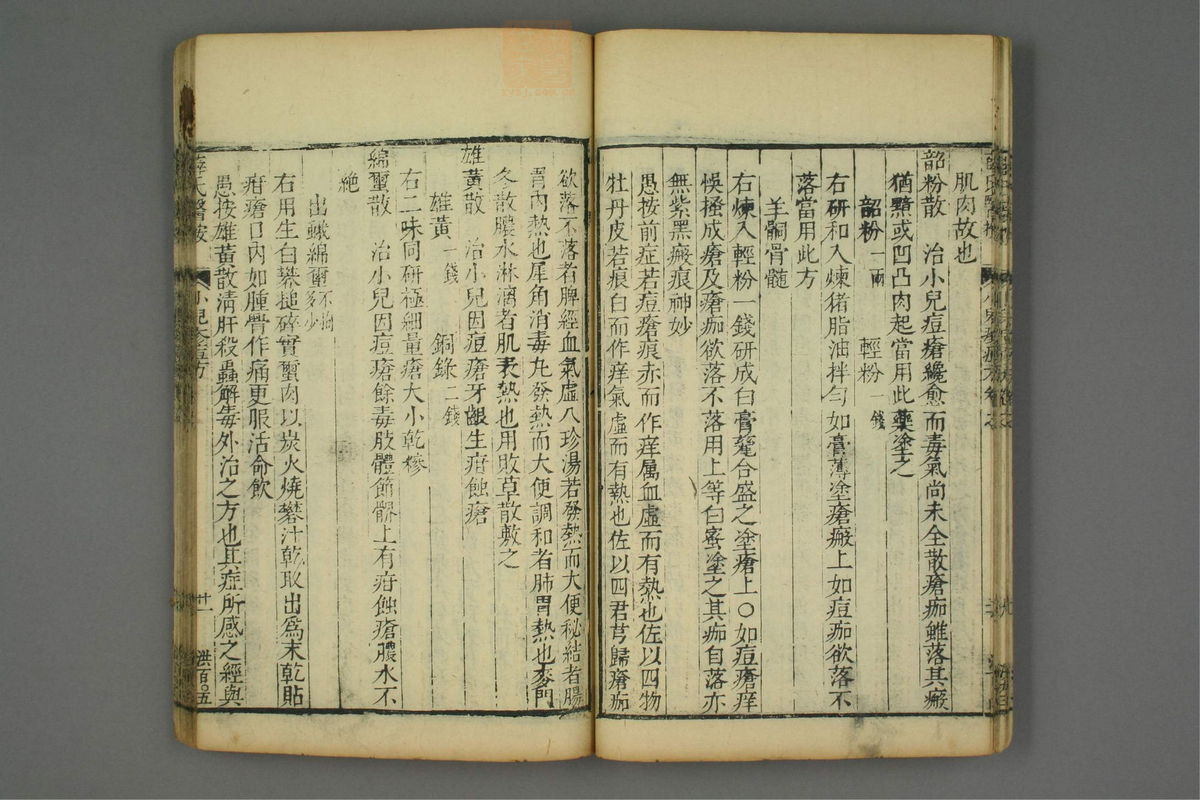 肌肉故也
韶粉散　治小兒痘瘡纔愈而毒氣尚未全散瘡痂雖落其瘢
猶黯或凹凸肉起當用此藥塗之
韶粉一兩　輕粉一錢
右研和入煉猪脂油拌勻如膏薄塗瘡瘢上如痘痂欲落不
落當用此方
羊䯊骨髓
右煉入輕粉一錢研成白膏甆合盛之塗瘡上○如痘瘡痒
悞搔成瘡及瘡痂欲落不落用上等白蜜塗之其痂自落亦
無紫黑瘢痕神妙
愚按前症若痘瘡痕赤而作痒屬血虛而有熱也佐以四物
牡丹皮若痕白而作痒氣虛而有熱也佐以四君芎歸瘡痂
欲落不落者脾經血氣虛八珍湯若發熱而大便秘結者腸
胃內熱也犀角消毒丸發熱而大便調和者肺胃熱也麥門
冬散膿水淋漓者肌表熱也用敗草散敷之
雄黃散　治小兒因痘瘡牙齦生疳蝕瘡
雄黃一錢　銅錄二錢
右二味同研極細量瘡大小乾糝
綿蠒散　治小兒因痘瘡餘毒肢體節骱上有疳蝕瘡膿水不
絶
出蛾綿蠒不拘多少
右用生白礬搥碎實蠒內以炭火燒礬汁乾取出爲末乾貼
疳瘡口內如腫臀作痛更服活命飲
愚按雄黃散清肝殺蟲解毒外治之方也其症所感之經與
薛氏醫按　小兒　痘方　廿一　洪百○五